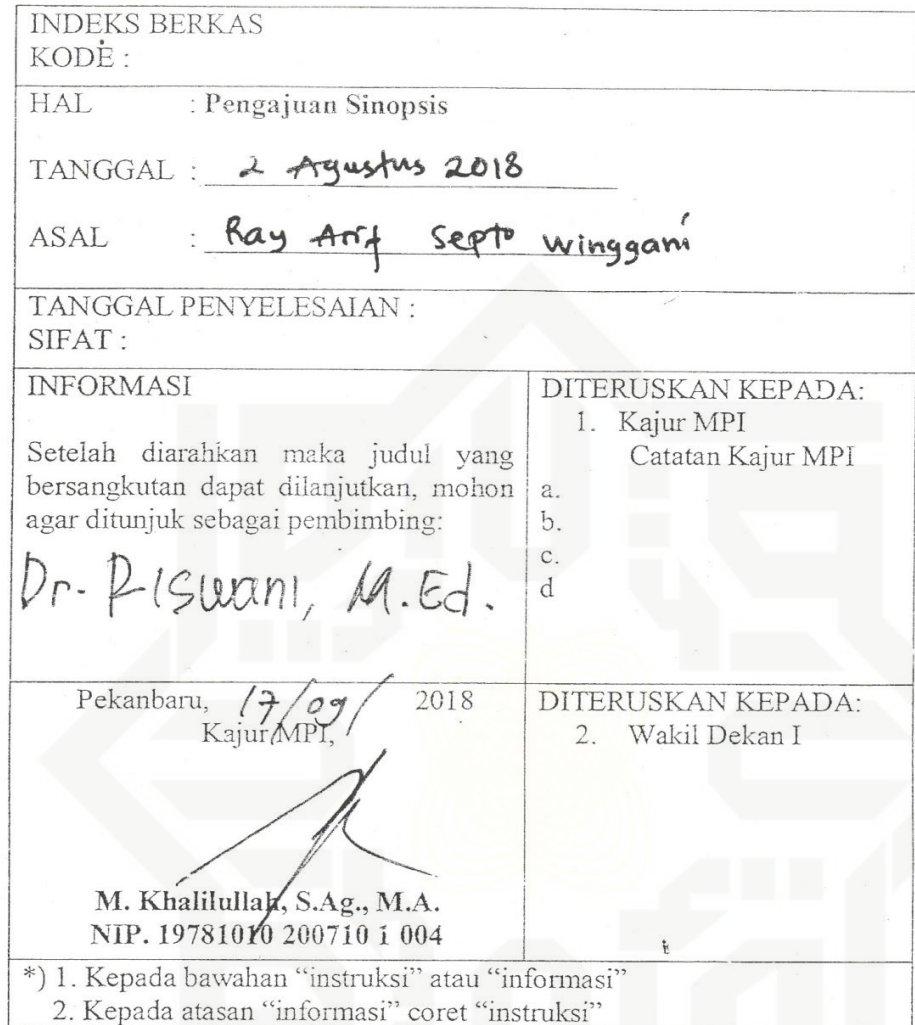 INDEKS BERKAS
KODE :
HAL : Pengajuan Sinopsis
TANGGAL : 2 Agustus 2018
ASAL : Ray Arif Septo Winggani
TANGGAL PENYELESAIAN :
SIFAT :
INFORMASI
Setelah diarahkan maka judul yang
bersangkutan dapat dilanjutkan, mohon
agar ditunjuk sebagai pembimbing:
Dr. Riswani, M.Ed.
DITERUSKAN KEPADA:
1. Kajur MPI
Catatan Kajur MPI
a.
b.
c.
d
Pekanbaru, 17/09/ 2018
Kajur MPI,
M. Khalilullah, S.Ag., M.A.
NIP. 19781010 200710 1 004
DITERUSKAN KEPADA:
2. Wakil Dekan I
*) 1. Kepada bawahan “instruksi” atau “informasi”
2. Kepada atasan “informasi” coret “instruksi”